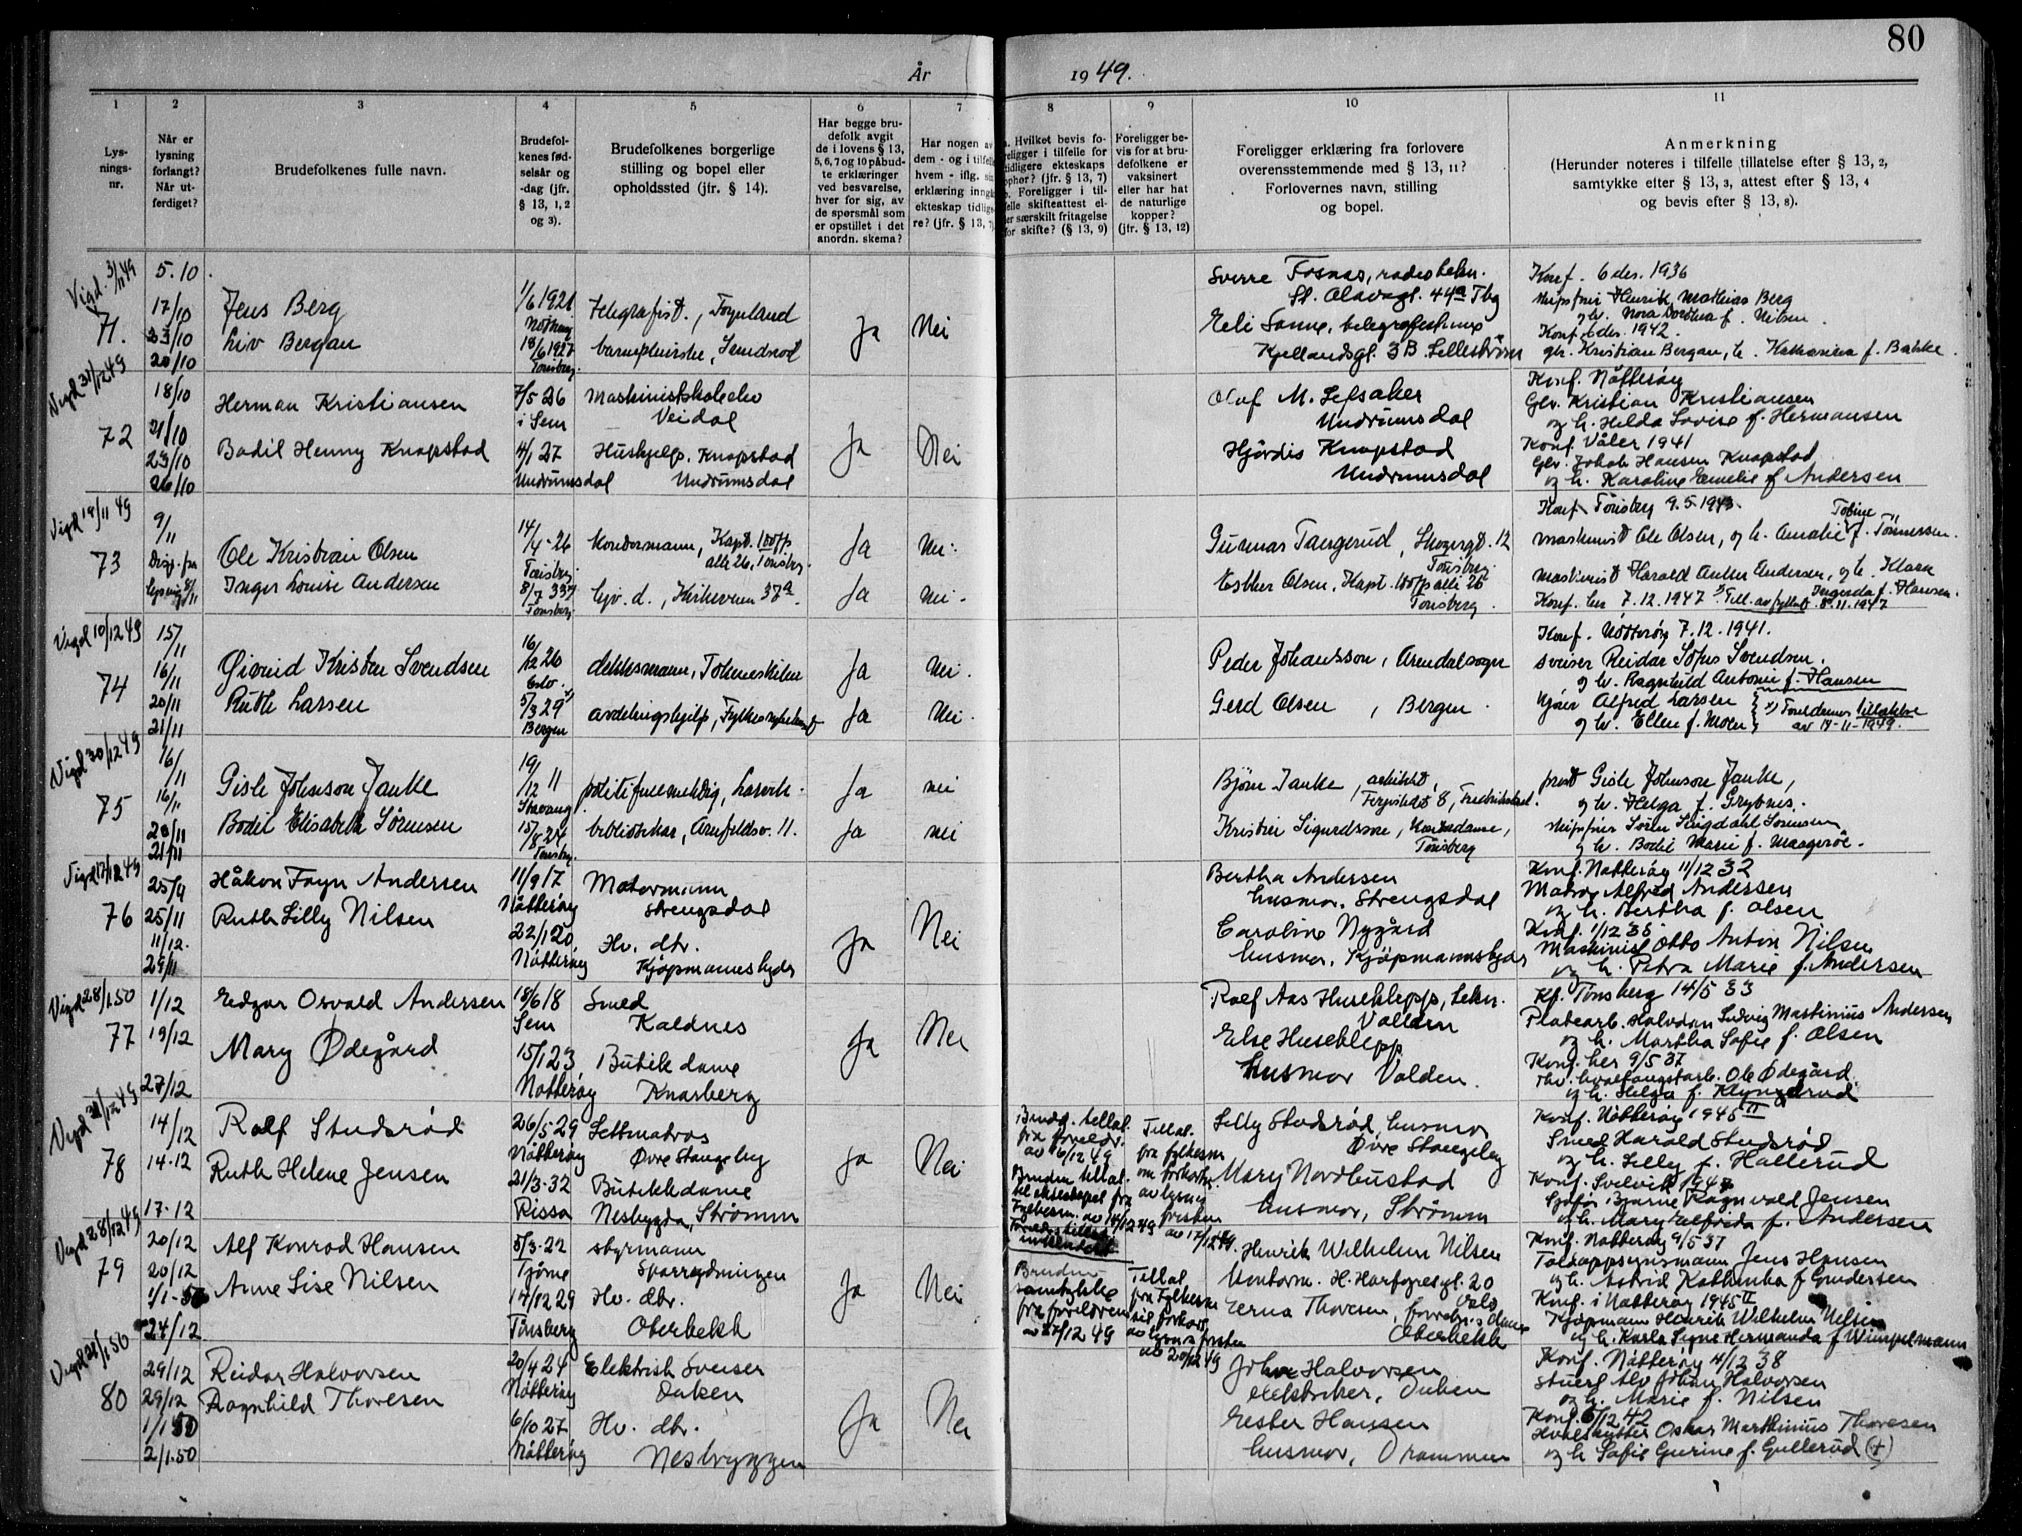 80
År 1949.
1 2 3 4 5 6 7 8 9 10 11
Lys-
nings-
nr.
Når er
lysning
forlangt?
Når ut-
ferdiget?
Brudefolkenes fulle navn.
Brudefol-
kenes fød-
selsår og
-dag (jfr.
§ 13, 1, 2
og 3).
Brudefolkenes borgerlige
stilling og bopel eller
opholdssted (jfr. § 14).
Har begge bru-
defolk avgit
de i lovens § 13,
5, 6, 7 og 10 påbud-
te erklæringer
ved besvarelse,
hver for sig, av
de spørsmål som
er opstillet i det
anordn. skema?
Har nogen av
dem - og i tilfelle
hvem - iflg. sin
erklæring inngått
ekteskap tidlige-
re? (jfr. § 13, 7)
Hvilket bevis fo-
religger i tilfelle for
tidligere ekteskaps
ophør? (jfr. § 13, 7)
Foreligger i til-
felle skifteattest el-
ler særskilt fritagelse
for skifte? (§ 13, 9)
Foreligger be-
vis for at bru-
defolkene er
vaksinert
eller har hat
de naturlige
kopper?
(jfr. § 13, 12)
Foreligger erklæring fra forlovere
overensstemmende med § 13, 11?
Forlovernes navn, stilling
og bopel.
Anmerkning
(Herunder noteres i tilfelle tillatelse efter § 13, 2,
samtykke efter § 13, 3, attest efter § 13, 4
og bevis efter § 13, 8).
Vigd. 3/11 49
71.
5.10.
17/10
23/10
20/10
Jens Berg
Liv Bergan
1/6 1921
18/6 1927
Tønsberg.
telegrafist, Føynland
barnepleierske,
Ja
Nei
Sverre Fosnas,
St. Olavsgt. 44a Tbg
Eli Sanne,
Kjellandsgt. 3B. Lillestrøm
Konf. 6 des. 1936
Henrik Mathias Berg
og h. Nora Dorthea f. Nilsen
Konf. 6 des. 1942.
Kristian Bergan, h. Katharina f. Bakke.
Vigd 31/12 49
72
18/10
21/10
23/10
26/10
Herman Kristiansen
Bodil Henny Knapstad
7/5 26
i Sem
4/1 27
Undrumsdal
Maskinistskoleelev
Veidal
Hushjelp. Knapstad
Undrumsdal
Ja
Nei
Olaf M. Sefsaker
Undrumsdal
Hjørdis Knapstad
Undrumsdal
Konf. Nøtterøy
Gbr. Kristian Kristiansen
og h. Hilda Lovise f. Hermansen
Konf Våler 1941
Gbr. Jakob Hansen Knapstad
og h. Karoline Emelie f Andersen
Vigd 19/11 49
73
9/11
Disp. fra
lysning 8/11
Ole Kristian Olsen
Inger Louise Andersen
14/4-26
Tønsberg.
8/7
Tønsberg.
Kapt.
alle 26, Tønsberg.
hjv. d., Kirkeveien 37a.
Ja
Nei.
Ja
Nei.
Gunnar Taugerud, 12
Tønsberg.
Esther Olsen, Kapt. alle 26
Tønsberg.
Konf. Tønsberg 9.5.1943.
maskinist Ole Olsen, og h. Amalie Tobine f. Tønnessen.
maskinist Harald Anker Andersen, og h. Klara
Ingerda f. Hansen.
Konf. her 7.12.1947 Till. av fylket 8.11.1947
Vigd 10/12 49
74
15/11
16/11
20/11
21/11
Øivind Kristen Svendsen
Ruth Larsen
16/12 26
Oslo.
5/3 29
Bergen
dekksmann, Tolvneskilen
avdelingshjelp, Fylkessykehuset
Ja
Nei.
Ja
Nei.
Peder Johansson, Arendalsoger
Gerd Olsen, Bergen.
Konf. Nøtterøy 7.12.1941.
sveiser Reidar Sofus Svendsen.
og h. Ragnhild Antonie f. Hansen
Alfred Larsen
og h. Ellen f. Moen
Foreldrenes tillatelse
av 14-11-1949.
Vigd 30/12 49
75
16/11
16/11
20/11
21/11
Gisle Johnson Janke
Bodil Elisabeth Sørensen
19/12 11
Stavanger
15/8 24
Tønsberg.
politifullmektig, Larvik.
bibliotekar, Arnfeldsv. 11.
Ja
nei
Ja
nei
Bjørn Janke, arkitekt,
8, Fredrikstad.
Kristi Sigurdssøn,
Tønsberg
prost Gisle Johnson Janke,
og h. Helga f. Grytnes.
skipsfører Søren Lingdahl Sørensen
og h. Bodil Marie f. Maagerøe.
Vigd 17/12 49
76
25/11
25/11
11/12.
29/11
Håkon Føyn Andersen
Ruth Lilly Nilsen
11/9 17
Nøtterøy
22/1 20.
Nøtterøy
Motormann
Strengsdal
Hv. dtr.
Kjøpmannskjær
Ja
Nei
Bertha Andersen
husmor, Strengsdal
Caroline Nygård
husmor. Kjøpmannskjær
Konf. Nøtterøy 11/12 32
Matros Alfred Andersen
og h. Bertha f. Olsen
Konf. 1/12 35
Maskinist Otto Anton Nilsen
og h. Petra Marie f. Andersen
Vigd 28/1.50
77
1/12
19/12
27/12
Edgar Osvald Andersen
Mary Ødegård
18/6 18
Sem
15/1 23
Nøtterøy
Smed
Kaldnes
Butikkdame
Knarberg
Ja
Nei
Rolf Aas Huseklepp,
Vallden
Else Huseklepp
husmor Valden.
Kf. Tønsberg 14/5 33
Platearb. Halvdan Ludvig Martinius Andersen
og h. Martha Sofie f. Olsen
Konf. her 9/5 37
Thv. hvalfangstarb. Ole Ødegård.
og h. Helga f. Klyngerud
Vigd 31/12 49
78
14/12
14-12
17-12
Rolf Studsrød
Ruth Helene Jensen
26/5-29
Nøtterøy
21/3-32
Rissa
Lettmatros
Øvre Stangeby
Butikkdame
Nesbygda, Strømm
Ja
Nei
Brudg. tillat.
fra foreldr.
av 6/12 49
Bruden tillat.
til ekteskapet fra
Fylkesm. av 14/12 49
Foreldres tillat.
innhentet
Tillat.
fra fylkesm
om forkortn.
av lysning
fristen
av 17/12 49.
Lilly Studsrød, husmor
Øvre Stangeby
Mary Nordbustad
husmor, Strømm
Konf. Nøtterøy 1945 II
Smed Harald Studsrød
og h. Lilly f. Hallerud
Konf. Svelvik 1947
Sjåfør Bjarne Ragnvald Jensen
og h. Mary Elfrida f. Andersen
Vigd 28/12 49
79
20/12
20/12
1/1-50
24/12
Alf Konrad Hansen
Anne Lise Nilsen
5/3-22
Tjøme
14/12 29
Tønsberg
styrmann
Sparrydningen
Hv. dtr.
Oterbekk
Ja
Nei
Bruden
samtykke
fra foreldrene
av 27/12 49
Tillat.
fra Fylkesm
til forkort.
av lysnsfristen
av 20/12 49
Henrik Wilhelm Nilsen
Montører. H. Harfagresgt. 20
Oslo
Erna Thoresen,
Oterbekk
Konf. Nøtterøy 9/5 37
Tolloppsynsmann Jens Hansen
og h. Astrid Kathinka f Gundersen
Konf. i Nøtterøy 1945 II
Kjøpmann Henrik Wilhelm Nilsen
og h. Karla Signe Hermanda f Wimpelmann
Vigd 28/1.50
80
29/12
29/12
1/1 50
2/1.50
Reidar Halvorsen
Ragnhild Thoresen
20/4 24
Nøtterøy
6/10 27
Nøtterøy
Elektrisk Sveiser
Duken
Hv. dtr.
Nesbryggen
Ja
Nei
Johan Halvorsen
elektriker, Duken
Ester Hansen
husmor, Drammen
Konf. Nøtterøy 4/12 38
Stuert Alv Johan Halvorsen
og h. Marie f. Nilsen
Konf. 6/12 42
Hvalskytter Oskar Marthinius Thoresen
og h Sofie Gurine f. Gullerud (+)